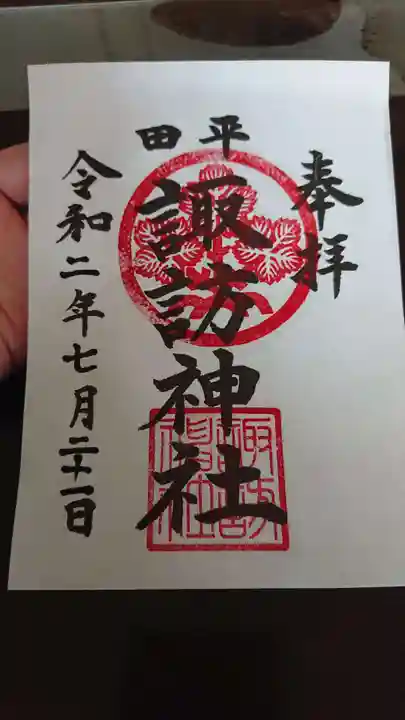 奉拝
平田
諏訪神社
令和二年七月二十一日